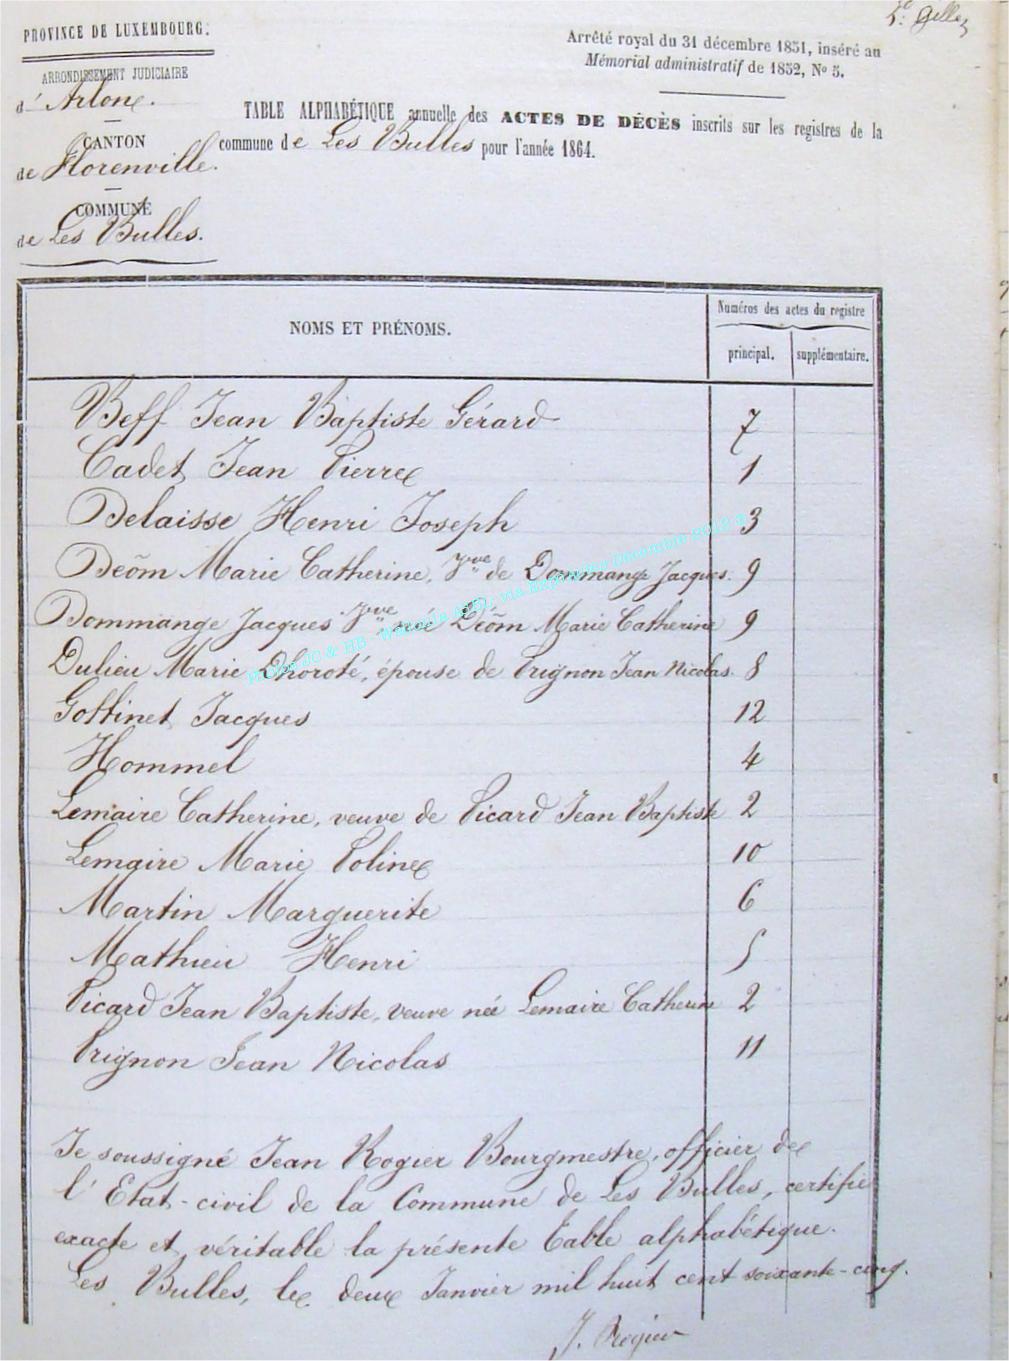 Gilles
PROVINCE DE LUXEMBOURG.
Arrêté royal du 31 décembre 1851, inséré au
Mémorial administratif de 1852, No 5.
ARRONDISSEMENT JUDICIAIRE
d'Arlon.
CANTON
de Florenville.
COMMUNE
de Les Bulles.
TABLE ALPHABÉTIQUE annuelle des ACTES DE DÉCÈS inscrits sur les registres de la
commune de Les Bulles pour l'année 1864.
NOMS ET PRÉNOMS.
Numéros des actes du registre
principal. supplémentaire.
Beff Jean Baptiste Gérard 7
Cadet Jean Pierre 1
Delaisse Henri Joseph 3
Deôm Marie Catherine, Vve de Dommange Jacques. 9
Dommange Jacques Vve née Déôm Marie Catherine 9
Dulieu Marie Dhoroté, épouse de Prignon Jean Nicolas. 8
Gottinet Jacques 12
Hommel 4
Lemaire Catherine, veuve de Picard Jean Baptiste 2
Lemaire Marie Poline 10
Martin Marguerite 6
Mathieu Henri 5
Picard Jean Baptiste, veuve née Lemaire Catherine 2
Prignon Jean Nicolas 11
Je soussigné Jean Rogier Bourgmestre, officier de
l'Etat-civil de la Commune de Les Bulles, certifie
exacte et véritable la présente table alphabétique.
Les Bulles, le deux Janvier mil huit cent soixante-cinq.
J. Rogier